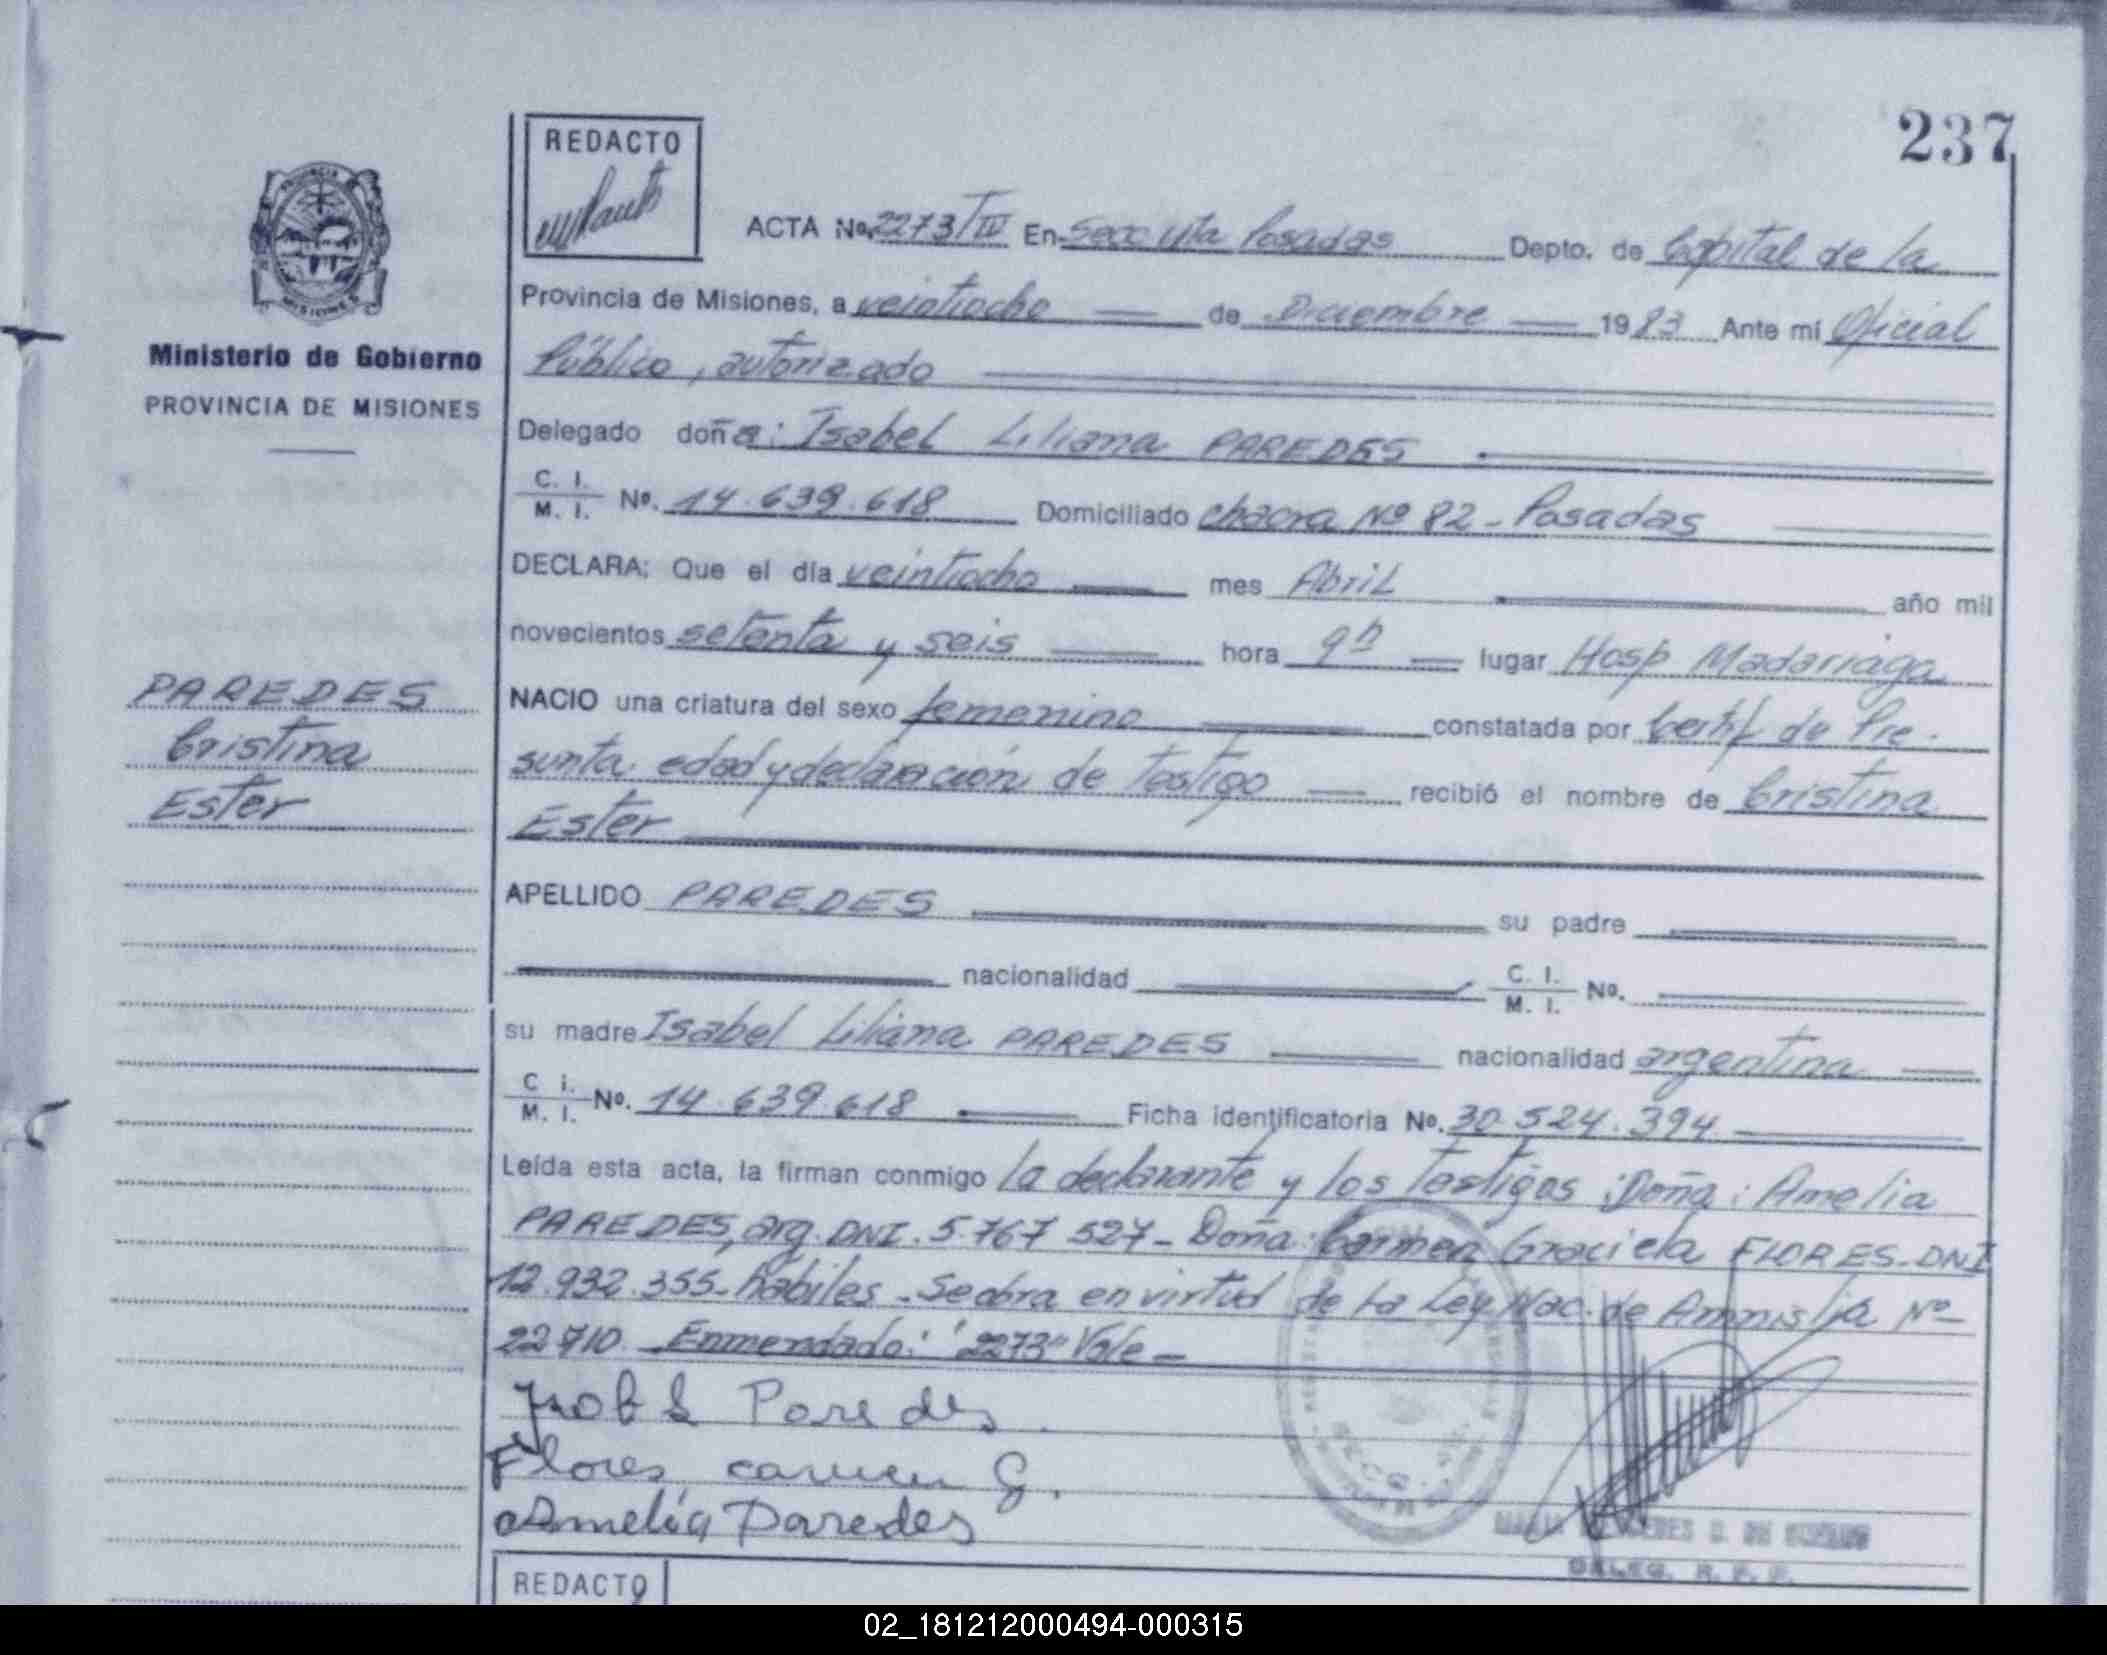 237
REDACTO
ACTA No. 2273/IV En Secc 4ta Posadas Depto. de Capital de la
Provincia de Misiones, a veintiocho de Diciembre 1983 Ante mí Oficial
Público, autorizado
Delegado doña: Isabel Liliana PAREDES
C. I.
M. I. Nº. 14.639.618 Domiciliado chacra Nº 82 - Posadas
DECLARA: Que el día veintiocho mes Abril año mil
novecientos setenta y seis hora 9h lugar Hosp Madariaga
NACIO una criatura del sexo femenino constatada por Certif de Pre-
sunta edad y declaración de testigo recibió el nombre de Cristina
Ester
APELLIDO PAREDES su padre
nacionalidad C. I.
M. I. Nº.
su madre Isabel Liliana PAREDES nacionalidad argentina
C i.
M. I. Nº. 14.639.618 Ficha identificatoria Nº. 30.524.394
Leída esta acta, la firman conmigo la declarante y los testigos: Doña: Amelia
PAREDES, arg. DNI. 5.767 527- Doña: Carmen Graciela FLORES-DNI
12.932.355-hábiles - Se obra en virtud de la Ley Nac. de Amnistía Nº
22710. Enmendado: "2273" Vale -
Isab L Paredes.
Flores carmen G.
Amelia Paredes
DELEG. R. P. P.
REDACTO
PROVINCIA DE
MISIONES
Ministerio de Gobierno
PROVINCIA DE MISIONES
PAREDES
Cristina
Ester
02_181212000494-000315